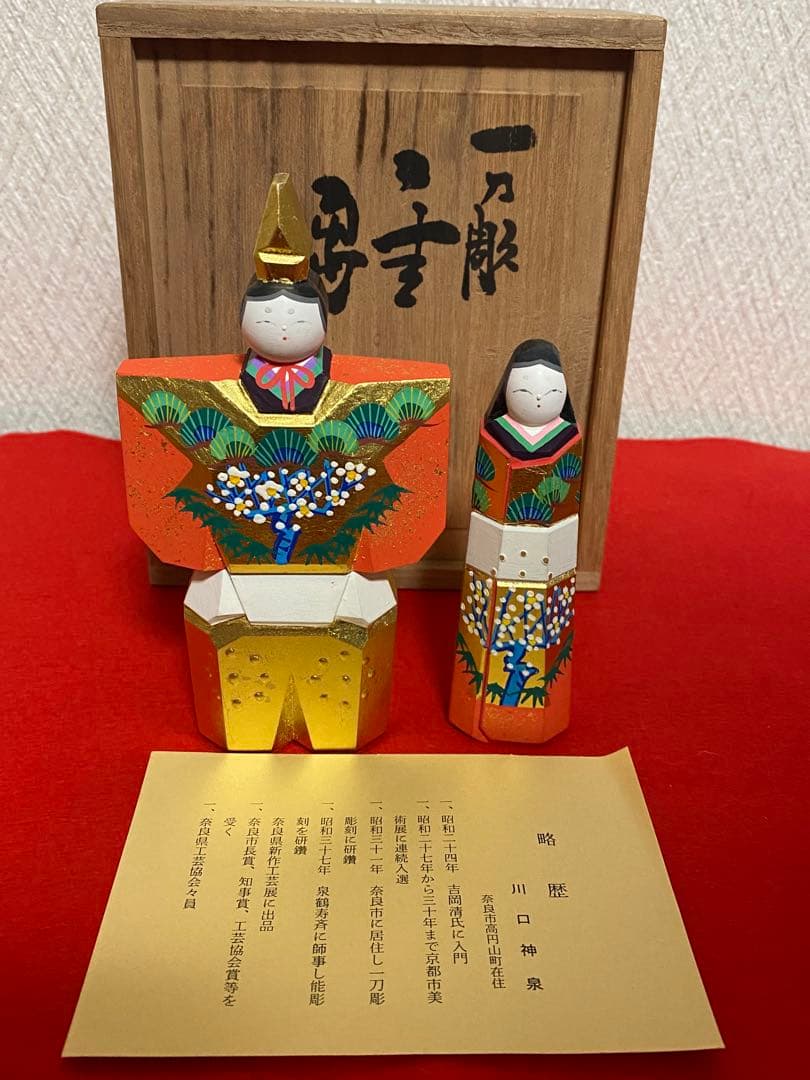 一刀彫
略歴
川口神泉
奈良市高円山町在住
一、昭和二十四年 吉岡清氏に入門
一、昭和二十七年から三十年まで京都市美
術展に連続入選
一、昭和三十一年 奈良市に居住し一刀彫
彫刻に研鑽
一、昭和三十七年 泉鶴寿斉に師事し能彫
刻を研鑽
奈良県新作工芸展に出品
一、奈良市長賞、知事賞、工芸協会賞等を
受く
一、奈良県工芸協会々員